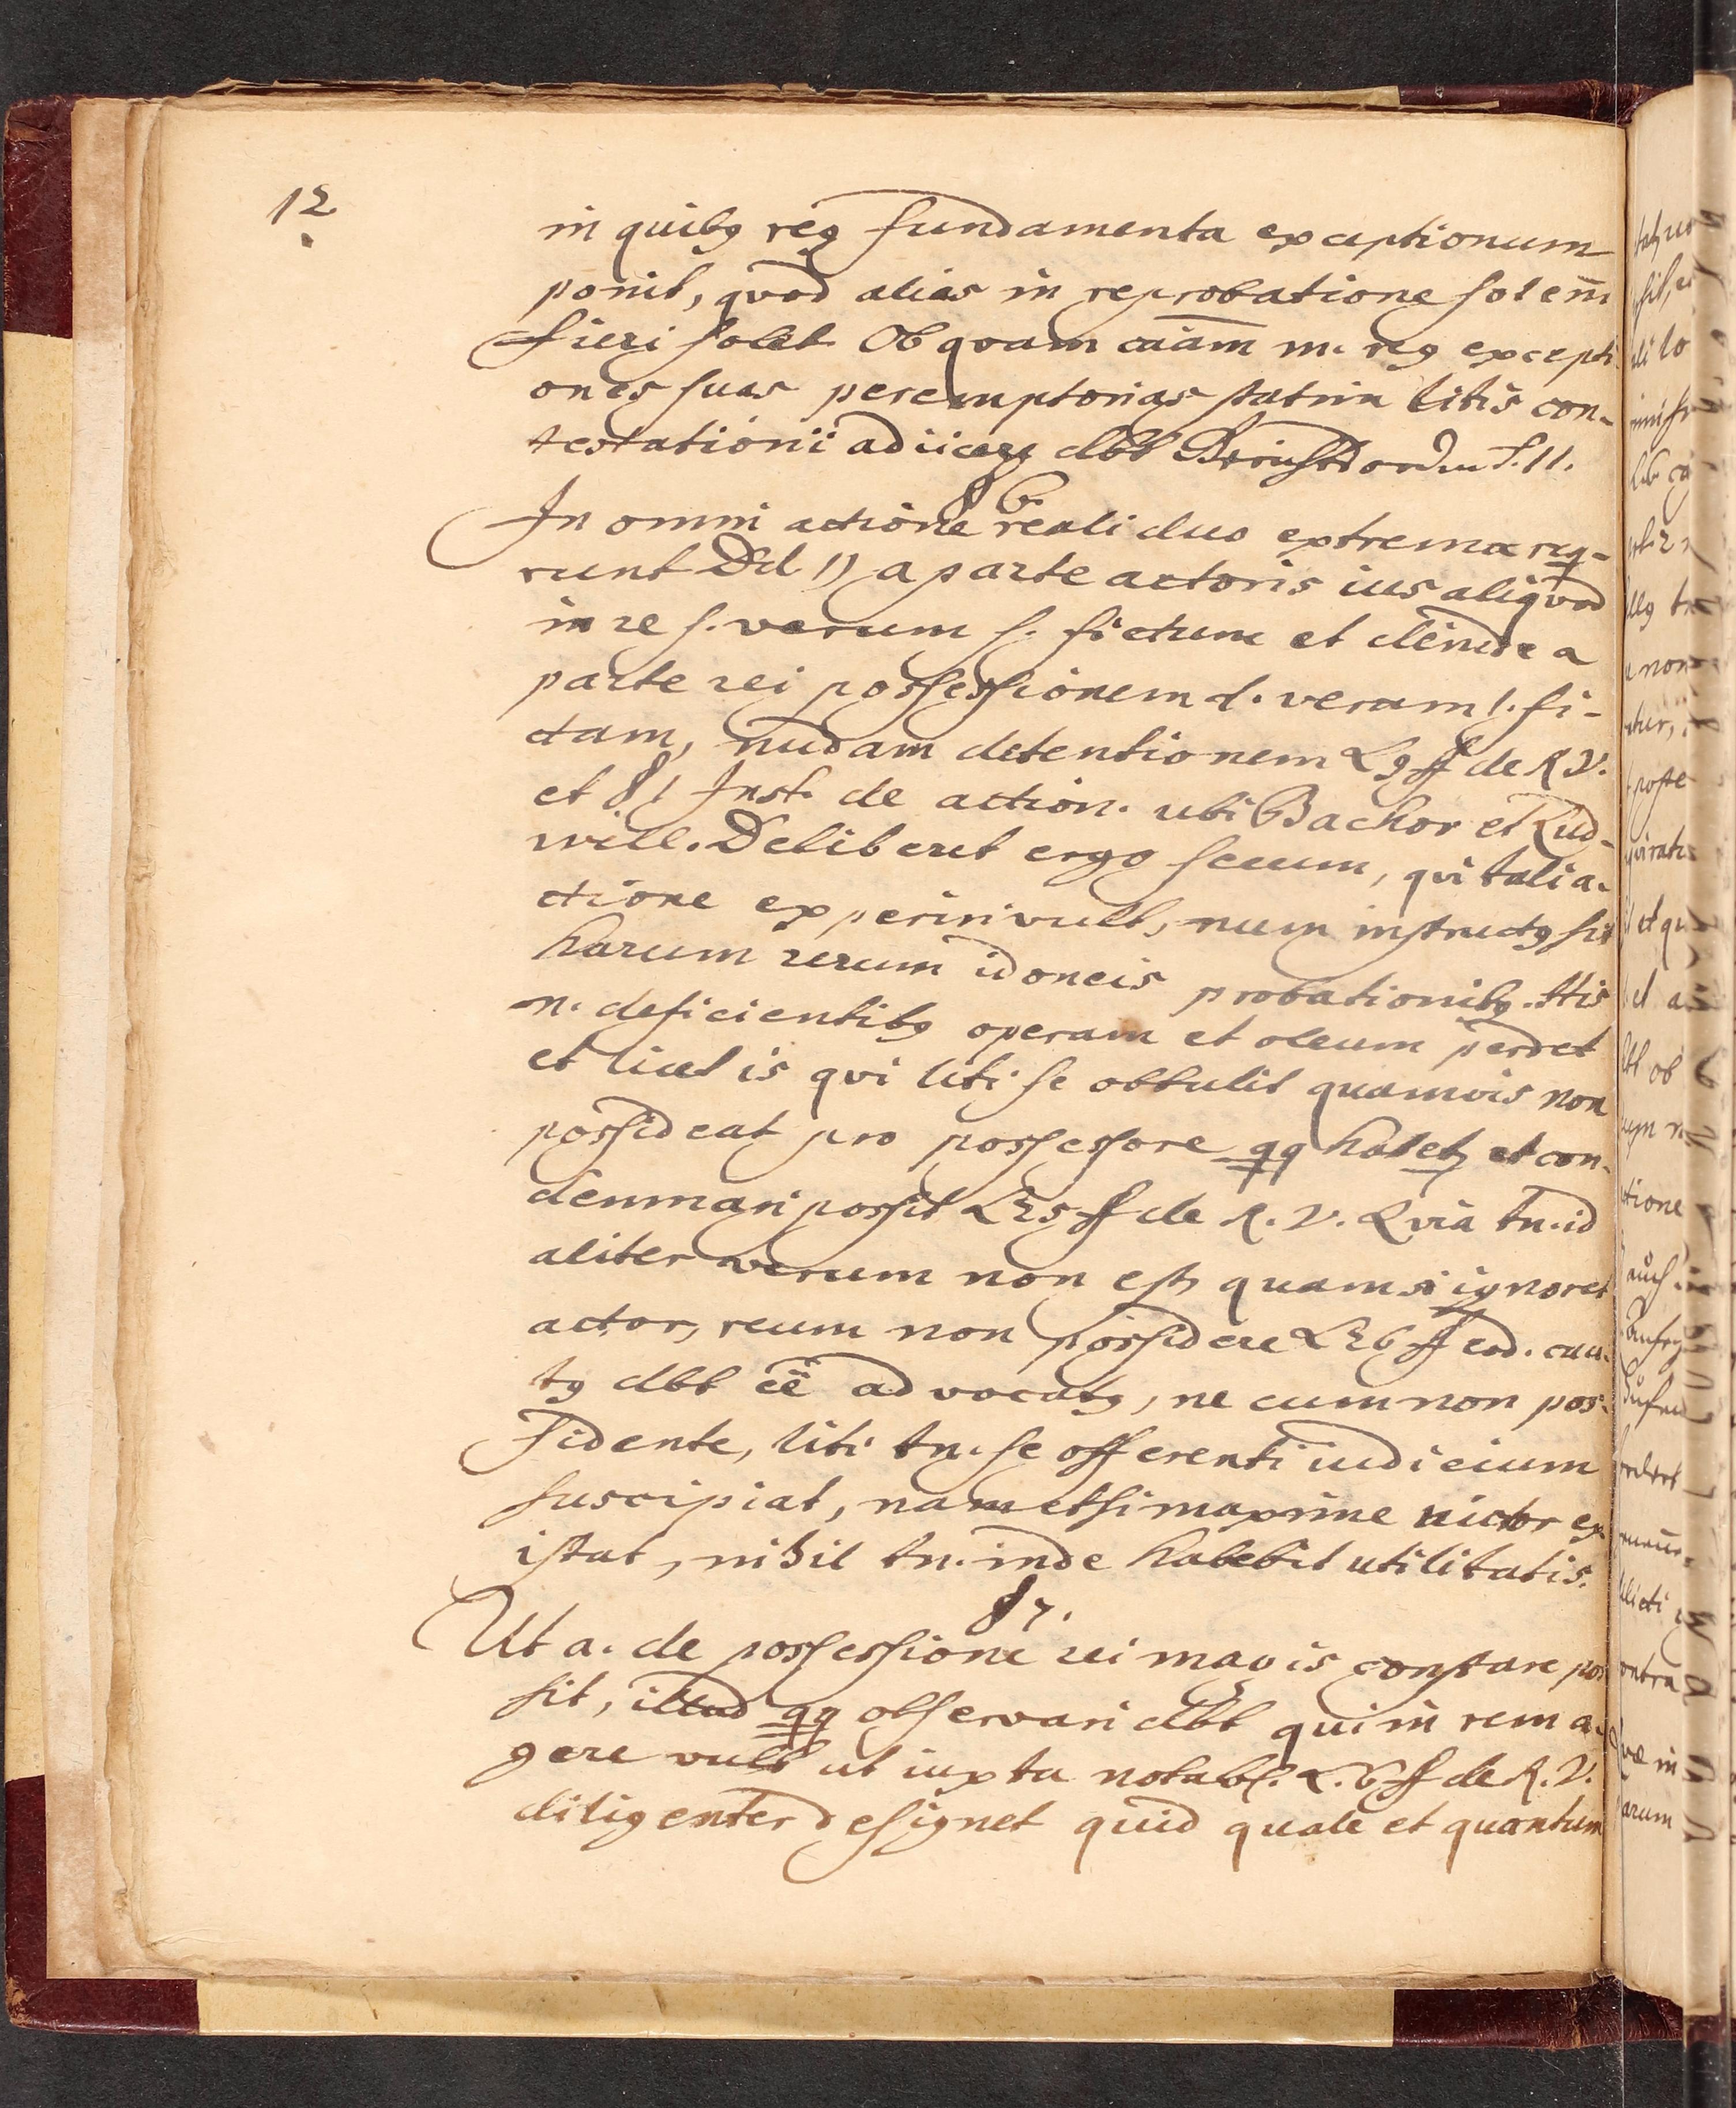 12
in quibꝯ reꝯ fundamenta exceptionum
ponit, quod alias in reprobatione solem̄
fieri solet Ob quam caūam m. reꝯ excepti
ones suas peremptorias statim litis con-
testationi adiicere dbt T. 11.
§ 6.
In omni actione reali duo extrema req-
runt Dd 1) a parte actoris ius aliqvod
in re s. verum s. fictum et deinde a
parte rei possessionem s. veram s. fi-
ctam, nudam detentionem L 9 ff de R V.
et § 1 Inst. de action. ubi Bachov et Lud
well. Deliberet ergo secum, qvi tali a-
ctione experiri vult, num instructꝯ sit
harum rerum idoneis probationibꝯ. His
n. deficientibꝯ operam et oleum perdet
et licet is qvi liti se obtulit quamvis non
possideat pro possessore qq habetꝫ et con-
demnari possit L 25 ff de R. V. Qvia tn. id
aliter verum non est, quam si ignoret
actor, reum non possidere L 26 ff eod. cau-
tꝯ dbt eē advocatꝯ, ne cum non pos-
sidente, liti tn. se offerenti iudicium
suscipiat, nam etsi maxime victor ex
istat, nihil tn. inde habebit utilitatis.
§ 7.
Ut a. de possessione rei magis constare pos
sit, illud qq observari dbt qui in rem a-
gere vult ut iuxta notabl. L. 6 ff de R. V.
diligenter designet quid quale et quantum